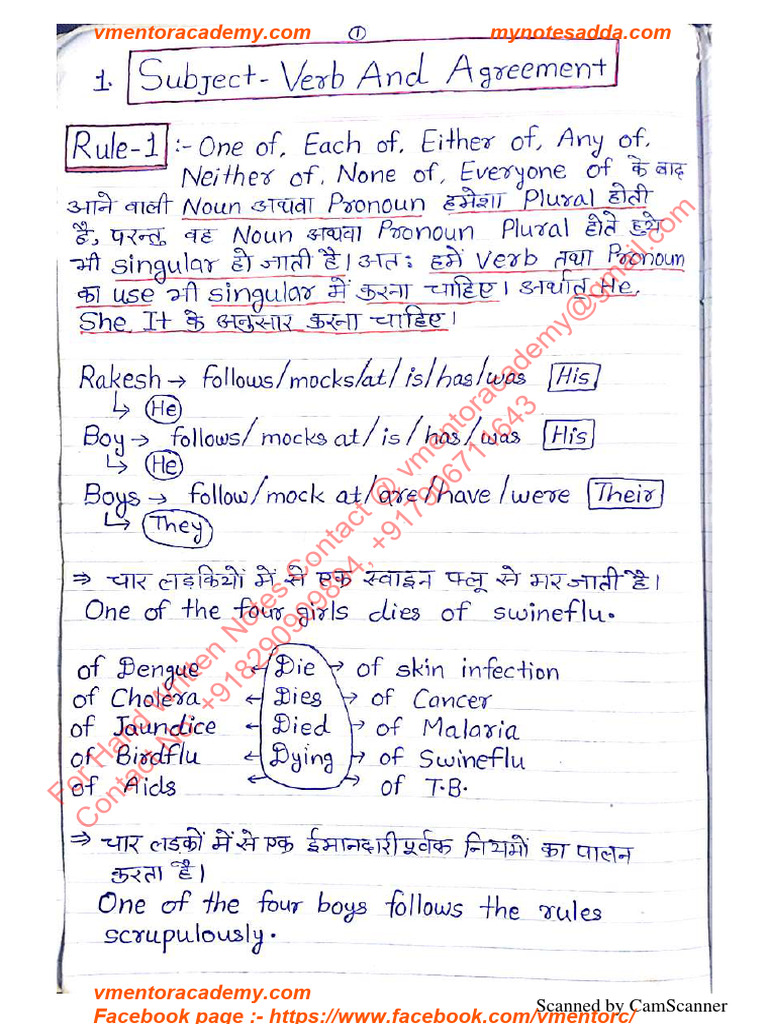 vmentoracademy.com 1 mynotesadda.com
1. Subject-Verb And Agreement
Rule-1 :- One of, Each of, Either of, Any of,
Neither of, None of, Everyone of के बाद
आने वाली Noun अथवा Pronoun हमेशा Plural होती
है, परन्तु वह Noun अथवा Pronoun Plural होते हुये
भी singular हो जाती है। अतः हमे verb तथा Pronoun
का use भी singular में करना चाहिए। अर्थात् He,
She, It के अनुसार करना चाहिए।
Rakesh → follows/mocks/at/is/has/was His
↳ He
Boy → follows/mocks at/is/has/was His
↳ He
Boys → follow/mock at/are/have/were Their
↳ They
⇒ चार लड़कियों में से एक स्वाइन फ्लू से मर जाती है।
One of the four girls dies of swineflu.
of Dengue ← Die → of skin infection
of Cholera ← Dies → of Cancer
of Jaundice ← Died → of Malaria
of Birdflu ← Dying → of Swineflu
of Aids ← → of T.B.
⇒ चार लड़कों में से एक ईमानदारी पूर्वक नियमों का पालन
करता है।
One of the four boys follows the rules
scrupulously.
For Hand Written Notes Contact @ vmentoracademy@gmail.com
Contact No. +918290909894, +917306711643
vmentoracademy.com
Scanned by CamScanner
Facebook page :- https://www.facebook.com/vmentorc/